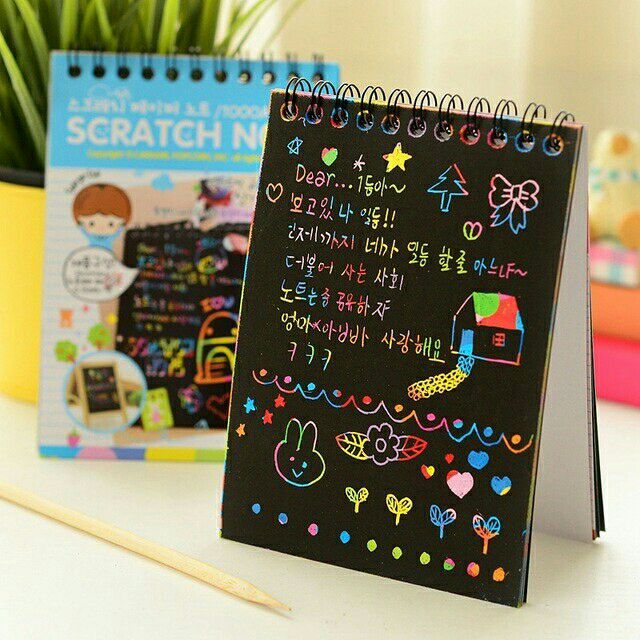 스크래치 페이퍼 노트 /1000
SCRATCH NO
Dear... 1등아~
보고있나 일등!!
언제까지 네가 일등 할줄 아느냐~
더불어 사는 사회
노트는좀 공유하자
엄마×아빠 사랑해요
ㅋㅋㅋ